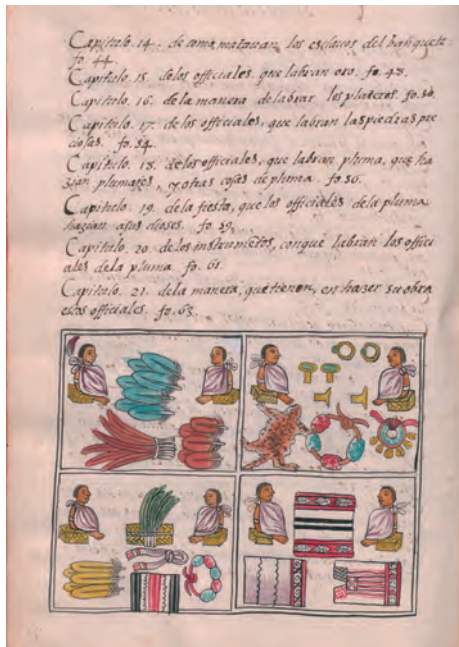 Capitulo. 14. de como matauan los esclauos del banquete.
fo. 44.
Capitulo. 15. de los officiales, que labran oro. fo. 48.
Capitulo. 16. de la manera de labrar los plateros. fo. 50.
Capitulo. 17. de los officiales, que labran las piedras pre
ciosas. fo. 54.
Capitulo. 18. de los officiales, que labran pluma, que ha
zian plumajes, y otras cosas de pluma. fo. 56.
Capitulo. 19. de la fiesta, que los officiales de la pluma
hazian a sus dioses. fo. 59.
Capitulo. 20. de los instrumētos, con que labran los offici
ales de la pluma fo. 61.
Capitulo. 21. de la manera, que tienen, en hazer su obra
estos officiales. fo. 63.